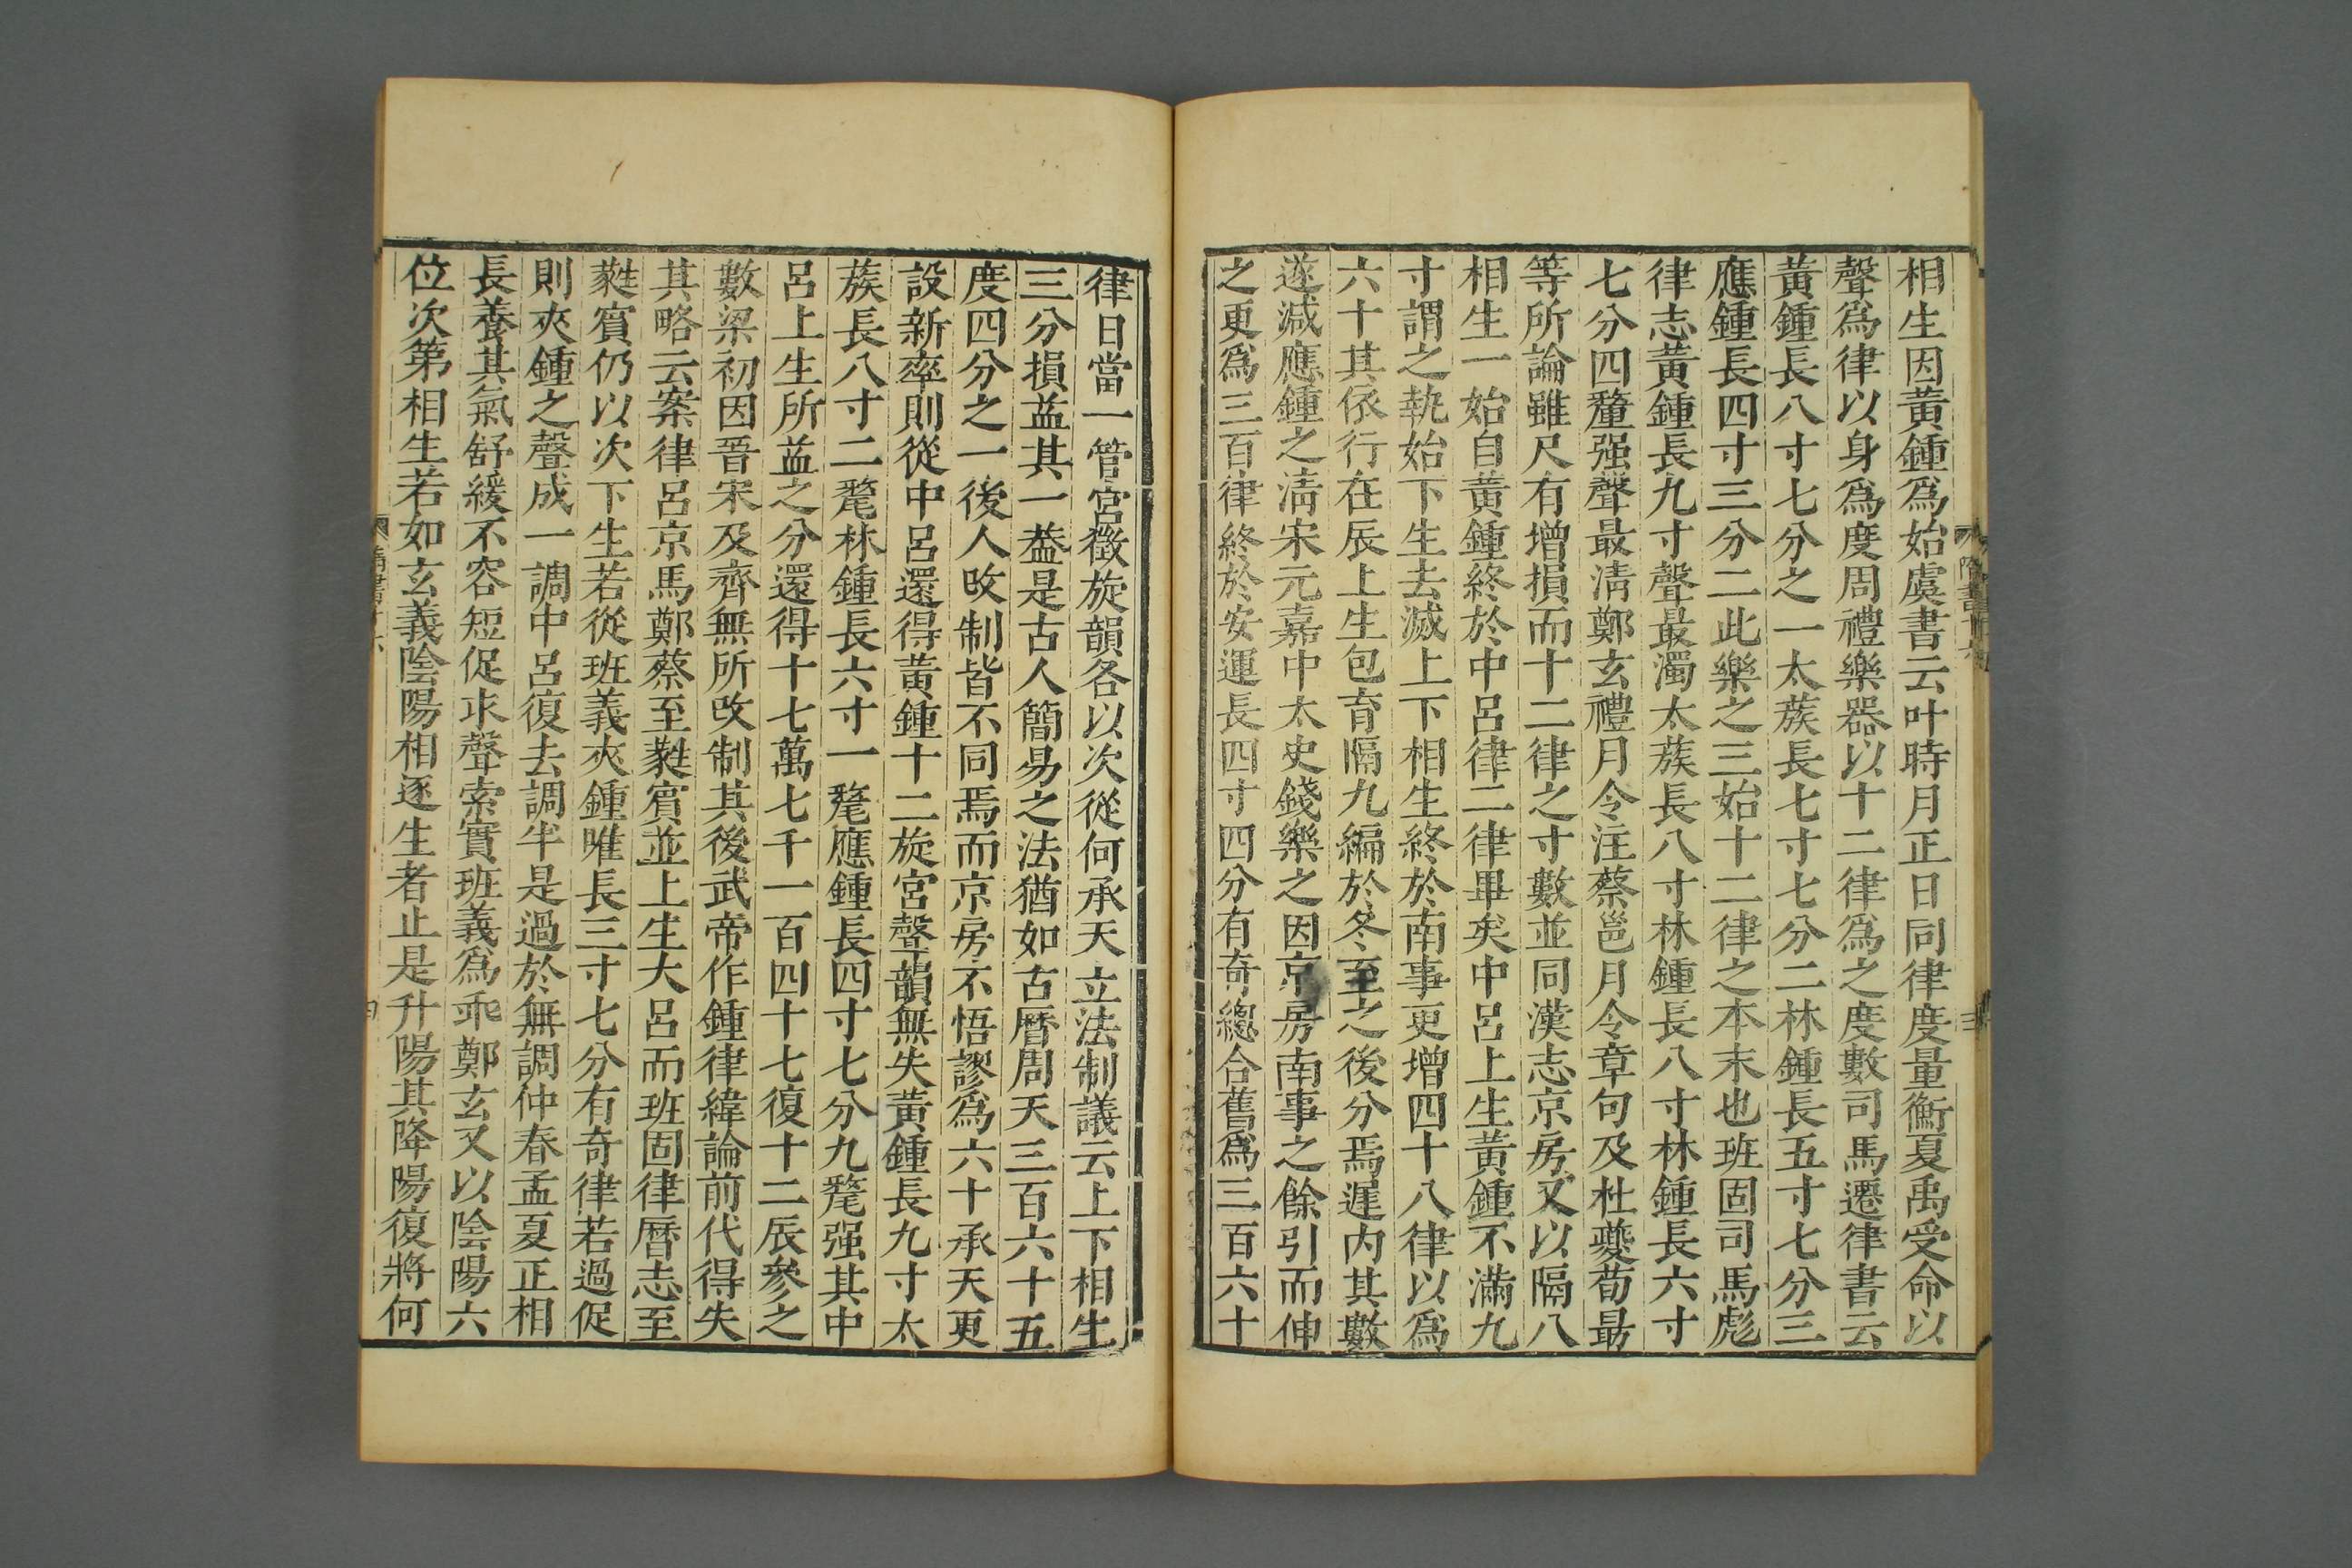 相生因黃鍾爲始虞書云叶時月正日同律度量衡夏禹受命以
聲爲律以身爲度周禮樂器以十二律爲之度數司馬遷律書云
黃鍾長八寸七分之一太蔟長七寸七分二林鍾長五寸七分三
應鍾長四寸三分二此樂之三始十二律之本末也班固司馬彪
律志黃鍾長九寸聲最濁太蔟長八寸林鍾長八寸林鍾長六寸
七分四釐强聲最淸鄭玄禮月令注蔡邕月令章句及杜夔荀最
等所論雖尺有增損而十二律之寸數並同漢志京房又以隔八
相生一始自黃鍾終於中呂律二律畢矣中呂上生黃鍾不滿九
寸謂之執始下生去滅上下相生終於南事更增四十八律以爲
六十其依行在辰上生包育隔九編於冬至之後分焉遲内其數
遂減應鍾之淸宋元嘉中太史錢樂之因京房南事之餘引而伸
之更爲三百律終於安運長四寸四分有奇緫合舊爲三百六十
律日當一管宮徵旋韻各以次從何承天立法制議云上下相生
三分損益其一葢是古人簡易之法猶如古曆周天三百六十五
度四分之一後人改制皆不同焉而京房不悟謬爲六十承天更
設新率則從中呂還得黃鍾十二旋宮聲韻無失黃鍾長九寸太
蔟長八寸二氂林鍾長六寸一氂應鍾長四寸七分九氂强其中
呂上生所益之分還得十七萬七千一百四十七復十二辰參之
數梁初因晉宋及齊無所改制其後武帝作鍾律緯論前代得失
其略云案律呂京馬鄭蔡至蕤賓並上生大呂而班固律曆志至
蕤賓仍以次下生若從班義夾鍾唯長三寸七分有奇律若過促
則夾鍾之聲成一調中呂復去調半是過於無調仲春孟夏正相
長養其氣舒緩不容短促求聲索實班義爲乖鄭玄又以陰陽六
位次第相生若如玄義陰陽相逐生者止是升陽其降陽復將何